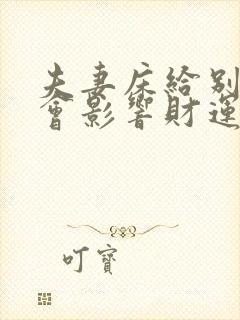 夫妻床給別
會影響財運
叮寶